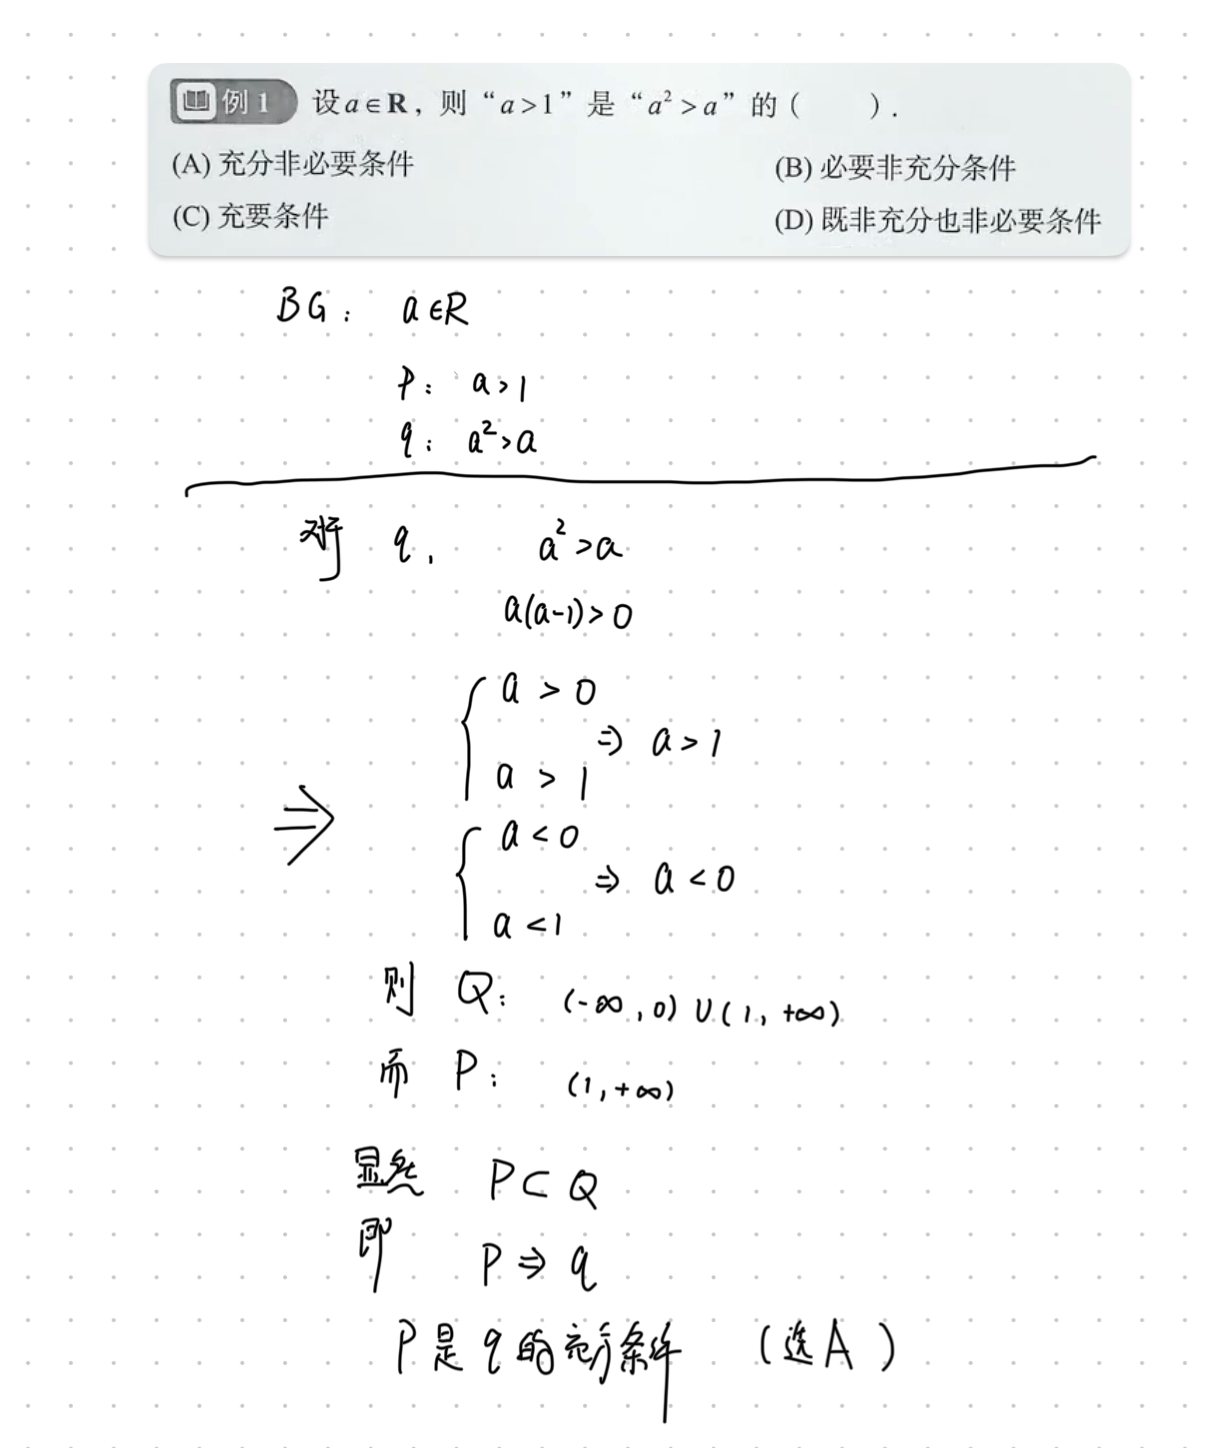 例1 设a∈R，则“a>1”是“a²>a”的（ ）.
(A) 充分非必要条件 (B) 必要非充分条件
(C) 充要条件 (D) 既非充分也非必要条件
BG: a∈R
p: a>1
q: a²>a
对于 q, a²>a
a(a-1)>0
a > 0
⇒ a>1
a > 1
⇒
a < 0
⇒ a<0
a < 1
则 Q: (-∞,0)∪(1,+∞)
而 P: (1,+∞)
显然 P⊂Q
即 P⇒q
P是q的充分条件 (选A)